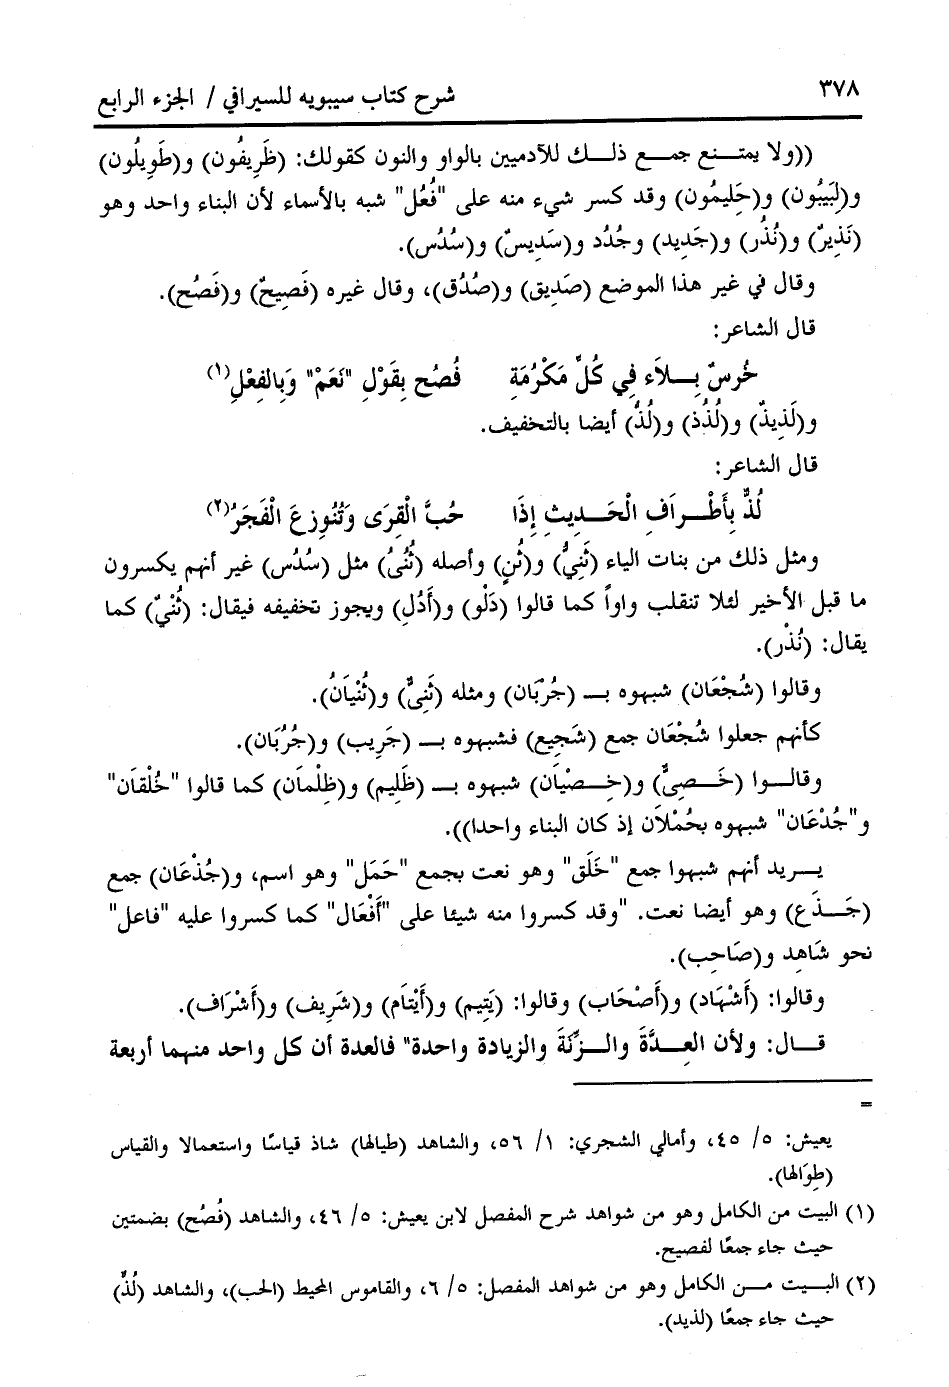 ٣٧٨
شرح كتاب سيبويه للسيرافي / الجزء الرابع
((ولا يمتنع جمع ذلك للآدميين بالواو والنون كقولك: (ظَرِيفُون) و(طَوِيلُون)
و(لَبِيبُون) و(حَلِيمُون) وقد كسر شيء منه على "فُعُل" شبه بالأسماء لأن البناء واحد وهو
(نَذِيرٌ) و(نُذُر) و(جَدِيد) وجُدُد و(سَدِيسٌ) و(سُدُس).
وقال في غير هذا الموضع (صَدِيق) و(صُدُق)، وقال غيره (فَصِيحٌ) و(فَصُح).
قال الشاعر:
خُرسٌ بِلاَء فِي كُلِّ مَكْرُمَةِ     فُصُح بِقَوْلِ "نَعَمْ" وَبِالفِعْلِ(١)
و(لَذِيذٌ) و(لُذُذ) و(لُذُّ) أيضا بالتخفيف.
قال الشاعر:
لُذٌّ بِأَطْرَافِ الْحَدِيثِ إِذَا     حُبَّ الْقِرَى وَتُنُوزِعَ الْفَجَرُ(٢)
ومثل ذلك من بنات الياء (ثَنِيٌّ) و(ثُنٍ) وأصله (ثُنُىٌ) مثل (سُدُس) غير أنهم يكسرون
ما قبل الأخير لئلا تنقلب واواً كما قالوا (دَلْو) و(أَدْلِ) ويجوز تخفيفه فيقال: (ثُنْيٌ) كما
يقال: (نُذْر).
وقالوا (شُجْعَان) شبهوه بـ (جُرْبَان) ومثله (ثَنِىٌّ) و(ثُنْيَانُ).
كأنهم جعلوا شُجْعَان جمع (شَجِيع) فشبهوه بـ (جَرِيب) و(جُرُبَان).
وقالوا (خَصِىٌّ) و(خِصْيَان) شبهوه بـ (ظَلِيم) و(ظِلْمان) كما قالوا "خُلْقاَن"
و"جُدْعَان" شبهوه بحُمْلاَن إذ كان البناء واحدا)).
يريد أنهم شبهوا جمع "خَلَق" وهو نعت بجمع "حَمَل" وهو اسم، و(جُذْعَان) جمع
(جَذَع) وهو أيضا نعت. "وقد كسروا منه شيئا على "أَفْعَال" كما كسروا عليه "فاعل"
نحو شَاهِد و(صَاحِب).
وقالوا: (أَشْهَاد) و(أَصْحَاب) وقالوا: (يَتِيم) و(أَيْتَام) و(شَرِيف) و(أَشْرَاف).
قال: ولأن العِدَّةَ والزِّنَةَ والزيادة واحدة" فالعدة أن كل واحد منهما أربعة
=
يعيش: ٥/ ٤٥، وأمالي الشجري: ١/ ٥٦، والشاهد (طيالها) شاذ قياسًا واستعمالا والقياس
(طِوَالها).
(١) البيت من الكامل وهو من شواهد شرح المفصل لابن يعيش: ٥/ ٤٦، والشاهد (فُصُح) بضمتين
حيث جاء جمعًا لفصيح.
(٢) البيت من الكامل وهو من شواهد المفصل: ٥/ ٦، والقاموس المحيط (الحب)، والشاهد (لُذٌّ)
حيث جاء جمعًا (لذيد).